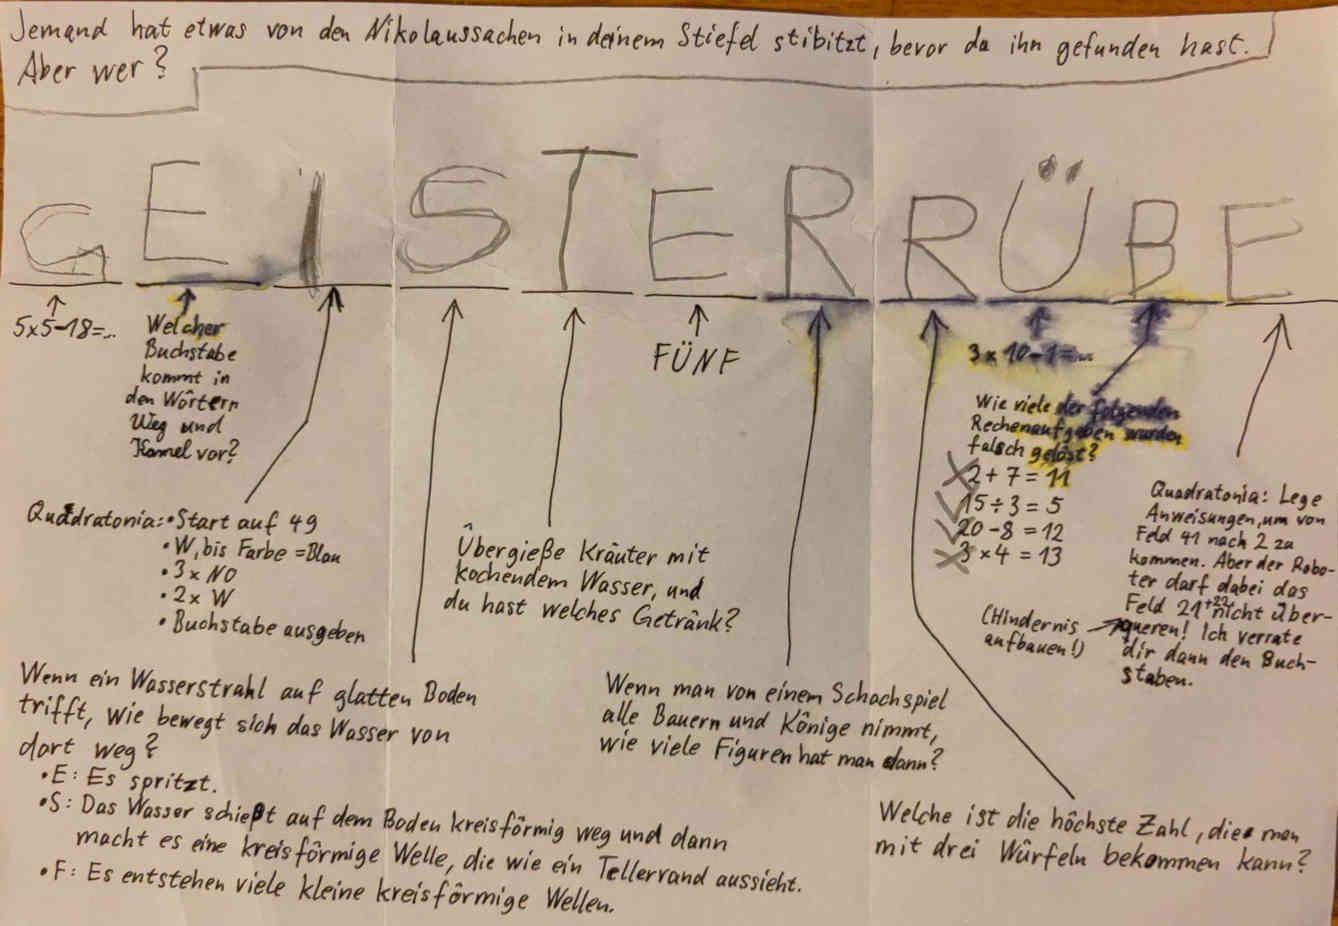 Jemand hat etwas von den Nikolaussachen in deinem Stiefel stibitzt, bevor du ihn gefunden hast.
Aber wer?
GEISTERRÜBE
5x5-18=...
Welcher
Buchstabe
kommt in
den Wörtern
Weg und
Kamel vor?
FÜNF
3 x 10-1=...
Wie viele der folgenden
Rechenaufgaben wurden
falsch gelöst?
2 + 7 = 11
15 ÷ 3 = 5
20 - 8 = 12
3 x 4 = 13
Quadratonia: • Start auf 49
• W, bis Farbe = Blau
• 3 x NO
• 2 x W
• Buchstabe ausgeben
Übergieße Kräuter mit
kochendem Wasser, und
du hast welches Getränk?
Quadratonia: Lege
Anweisungen, um von
Feld 41 nach 2 zu
kommen. Aber der Robo-
ter darf dabei das
Feld 21+22 nicht über-
queren! Ich verrate
dir dann den Buch-
staben.
(Hindernis
aufbauen!)
Wenn ein Wasserstrahl auf glatten Boden
trifft, wie bewegt sich das Wasser von
dort weg?
• E: Es spritzt.
• S: Das Wasser schießt auf dem Boden kreisförmig weg und dann
macht es eine kreisförmige Welle, die wie ein Tellerrand aussieht.
• F: Es entstehen viele kleine kreisförmige Wellen.
Wenn man von einem Schachspiel
alle Bauern und Könige nimmt,
wie viele Figuren hat man dann?
Welche ist die höchste Zahl, die man
mit drei Würfeln bekommen kann?